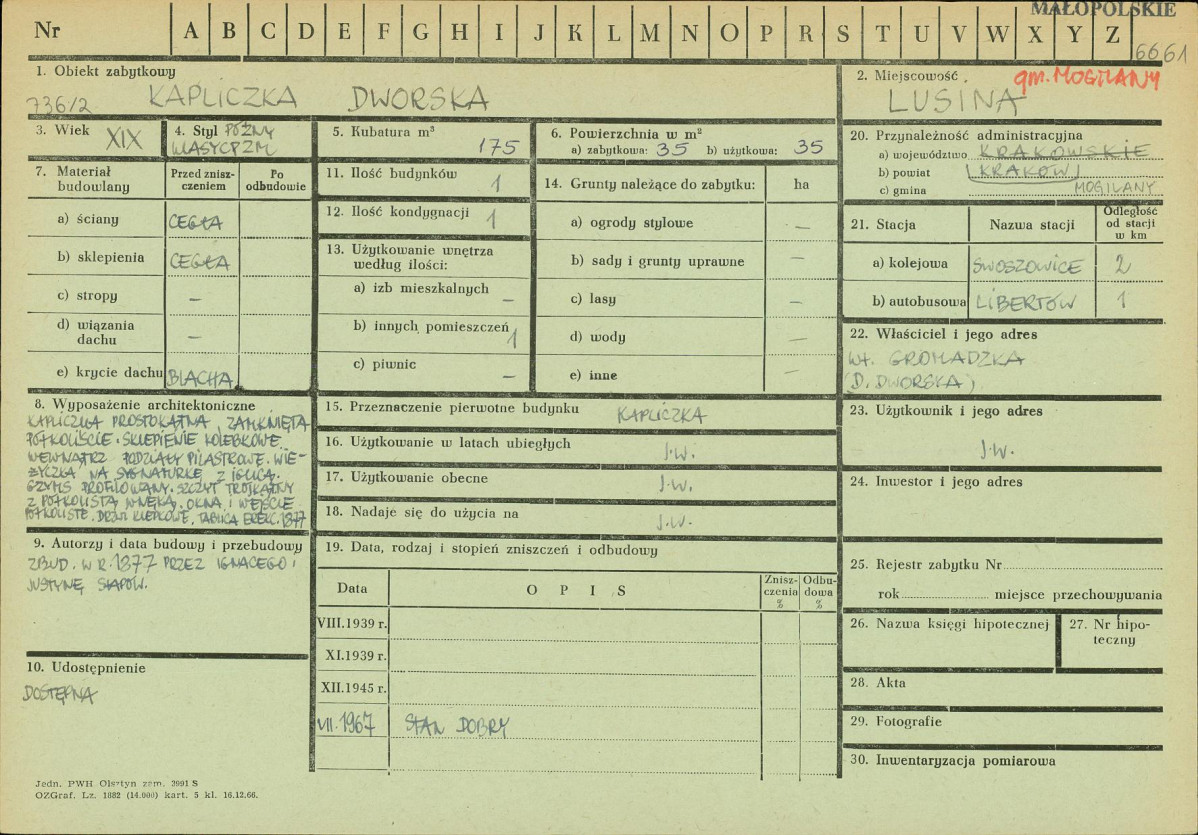 MAŁOPOLSKIE
Nr A B C D E F G H I J K L M N O P R S T U V W X Y Z
6661
1. Obiekt zabytkowy
736/2 KAPLICZKA DWORSKA
2. Miejscowość gm. MOGILANY
LUSINA
3. Wiek XIX
4. Styl PÓŹNY
KLASYCYZM
5. Kubatura m³
175
6. Powierzchnia w m²
a) zabytkowa: 35 b) użytkowa: 35
7. Materiał budowlany
Przed zniszczeniem
Po odbudowie
a) ściany CEGŁA
b) sklepienia CEGŁA
c) stropy –
d) wiązania dachu –
e) krycie dachu BLACHA
11. Ilość budynków 1
12. Ilość kondygnacji 1
13. Użytkowanie wnętrza
według ilości:
a) izb mieszkalnych –
b) innych pomieszczeń 1
c) piwnic –
14. Grunty należące do zabytku: ha
a) ogrody stylowe –
b) sady i grunty uprawne –
c) lasy –
d) wody –
e) inne –
20. Przynależność administracyjna
a) województwo KRAKOWSKIE
b) powiat KRAKÓW
c) gmina MOGILANY
21. Stacja
Nazwa stacji
Odległość
od stacji
w km
a) kolejowa SWOSZOWICE 2
b) autobusowa LIBERTÓW 1
22. Właściciel i jego adres
WŁ. GROMADZKA
(D. DWORSKA)
8. Wyposażenie architektoniczne
KAPLICZKA PROSTOKĄTNA, ZAMKNIĘTA
PÓŁKOLIŚCIE. SKLEPIENIE KOLEBKOWE.
WEWNĄTRZ PODZIAŁY PILASTROWE. WIE-
ŻYCZKA NA SYGNATURKĘ Z IGLICĄ.
GZYMS PROFILOWANY. SZCZYT TRÓJKĄTNY
Z PÓŁKOLISTĄ WNĘKĄ. OKNA I WEJŚCIE
PÓŁKOLISTE. DRZWI KLEPKOWE, TABLICA EREKC. 1877
15. Przeznaczenie pierwotne budynku KAPLICZKA
16. Użytkowanie w latach ubiegłych J.W.
17. Użytkowanie obecne J.W.
18. Nadaje się do użycia na J.W.
23. Użytkownik i jego adres
J.W.
24. Inwestor i jego adres
9. Autorzy i data budowy i przebudowy
ZBUD. W R. 1877 PRZEZ IGNACEGO I
JUSTYNĘ SŁAPÓW.
19. Data, rodzaj i stopień zniszczeń i odbudowy
Data OPIS Znisz-
czenia
% Odbu-
dowa
%
VIII.1939 r.
XI.1939 r.
XII.1945 r.
VII.1967 STAN DOBRY
10. Udostępnienie
DOSTĘPNA
25. Rejestr zabytku Nr
rok miejsce przechowywania
26. Nazwa księgi hipotecznej
27. Nr hipo-
teczny
28. Akta
29. Fotografie
30. Inwentaryzacja pomiarowa
Jedn. PWH Olsztyn zam. 2991 S
OZGraf. Lz. 1882 (14.000) kart. 5 kl. 16.12.66.